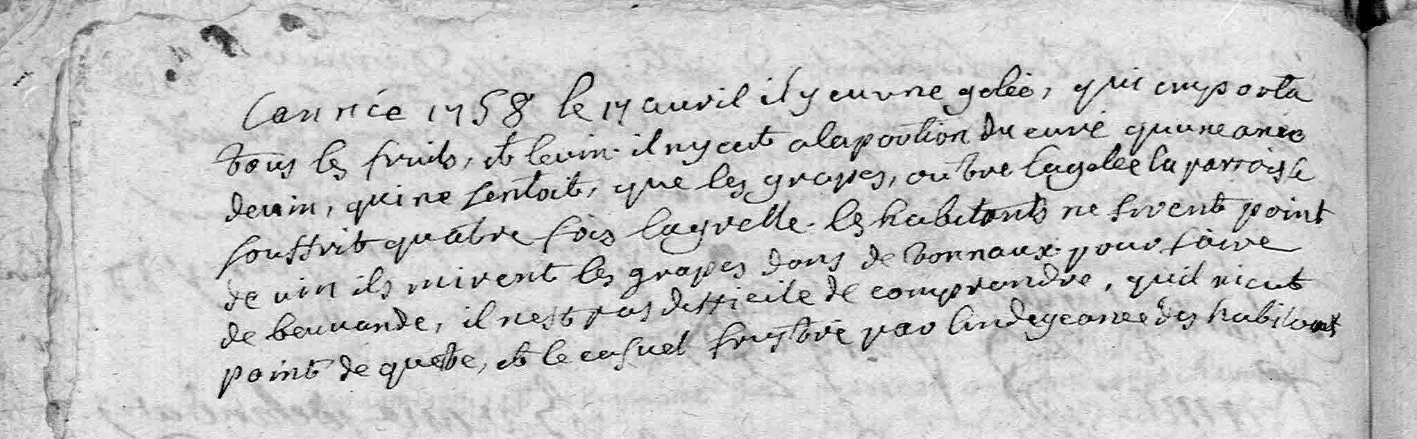 Lannéе 1758 le 17 auvril il y eu une gelée, qui emporta
tous les fruits, et le vin. il ny eut a la portion du curé quune anée
de vin, qui ne sentoit, que les grapes, outre la gelée la parroisse
souffrit quatre fois la grelle. les habitants ne firent point
de vin ils mirent les grapes dans de tonnaux pour faire
de beuvande, il nest pas difficile de comprendre, quil ni eut
point de quete, et le casuel frustré par lindegeance des habitants